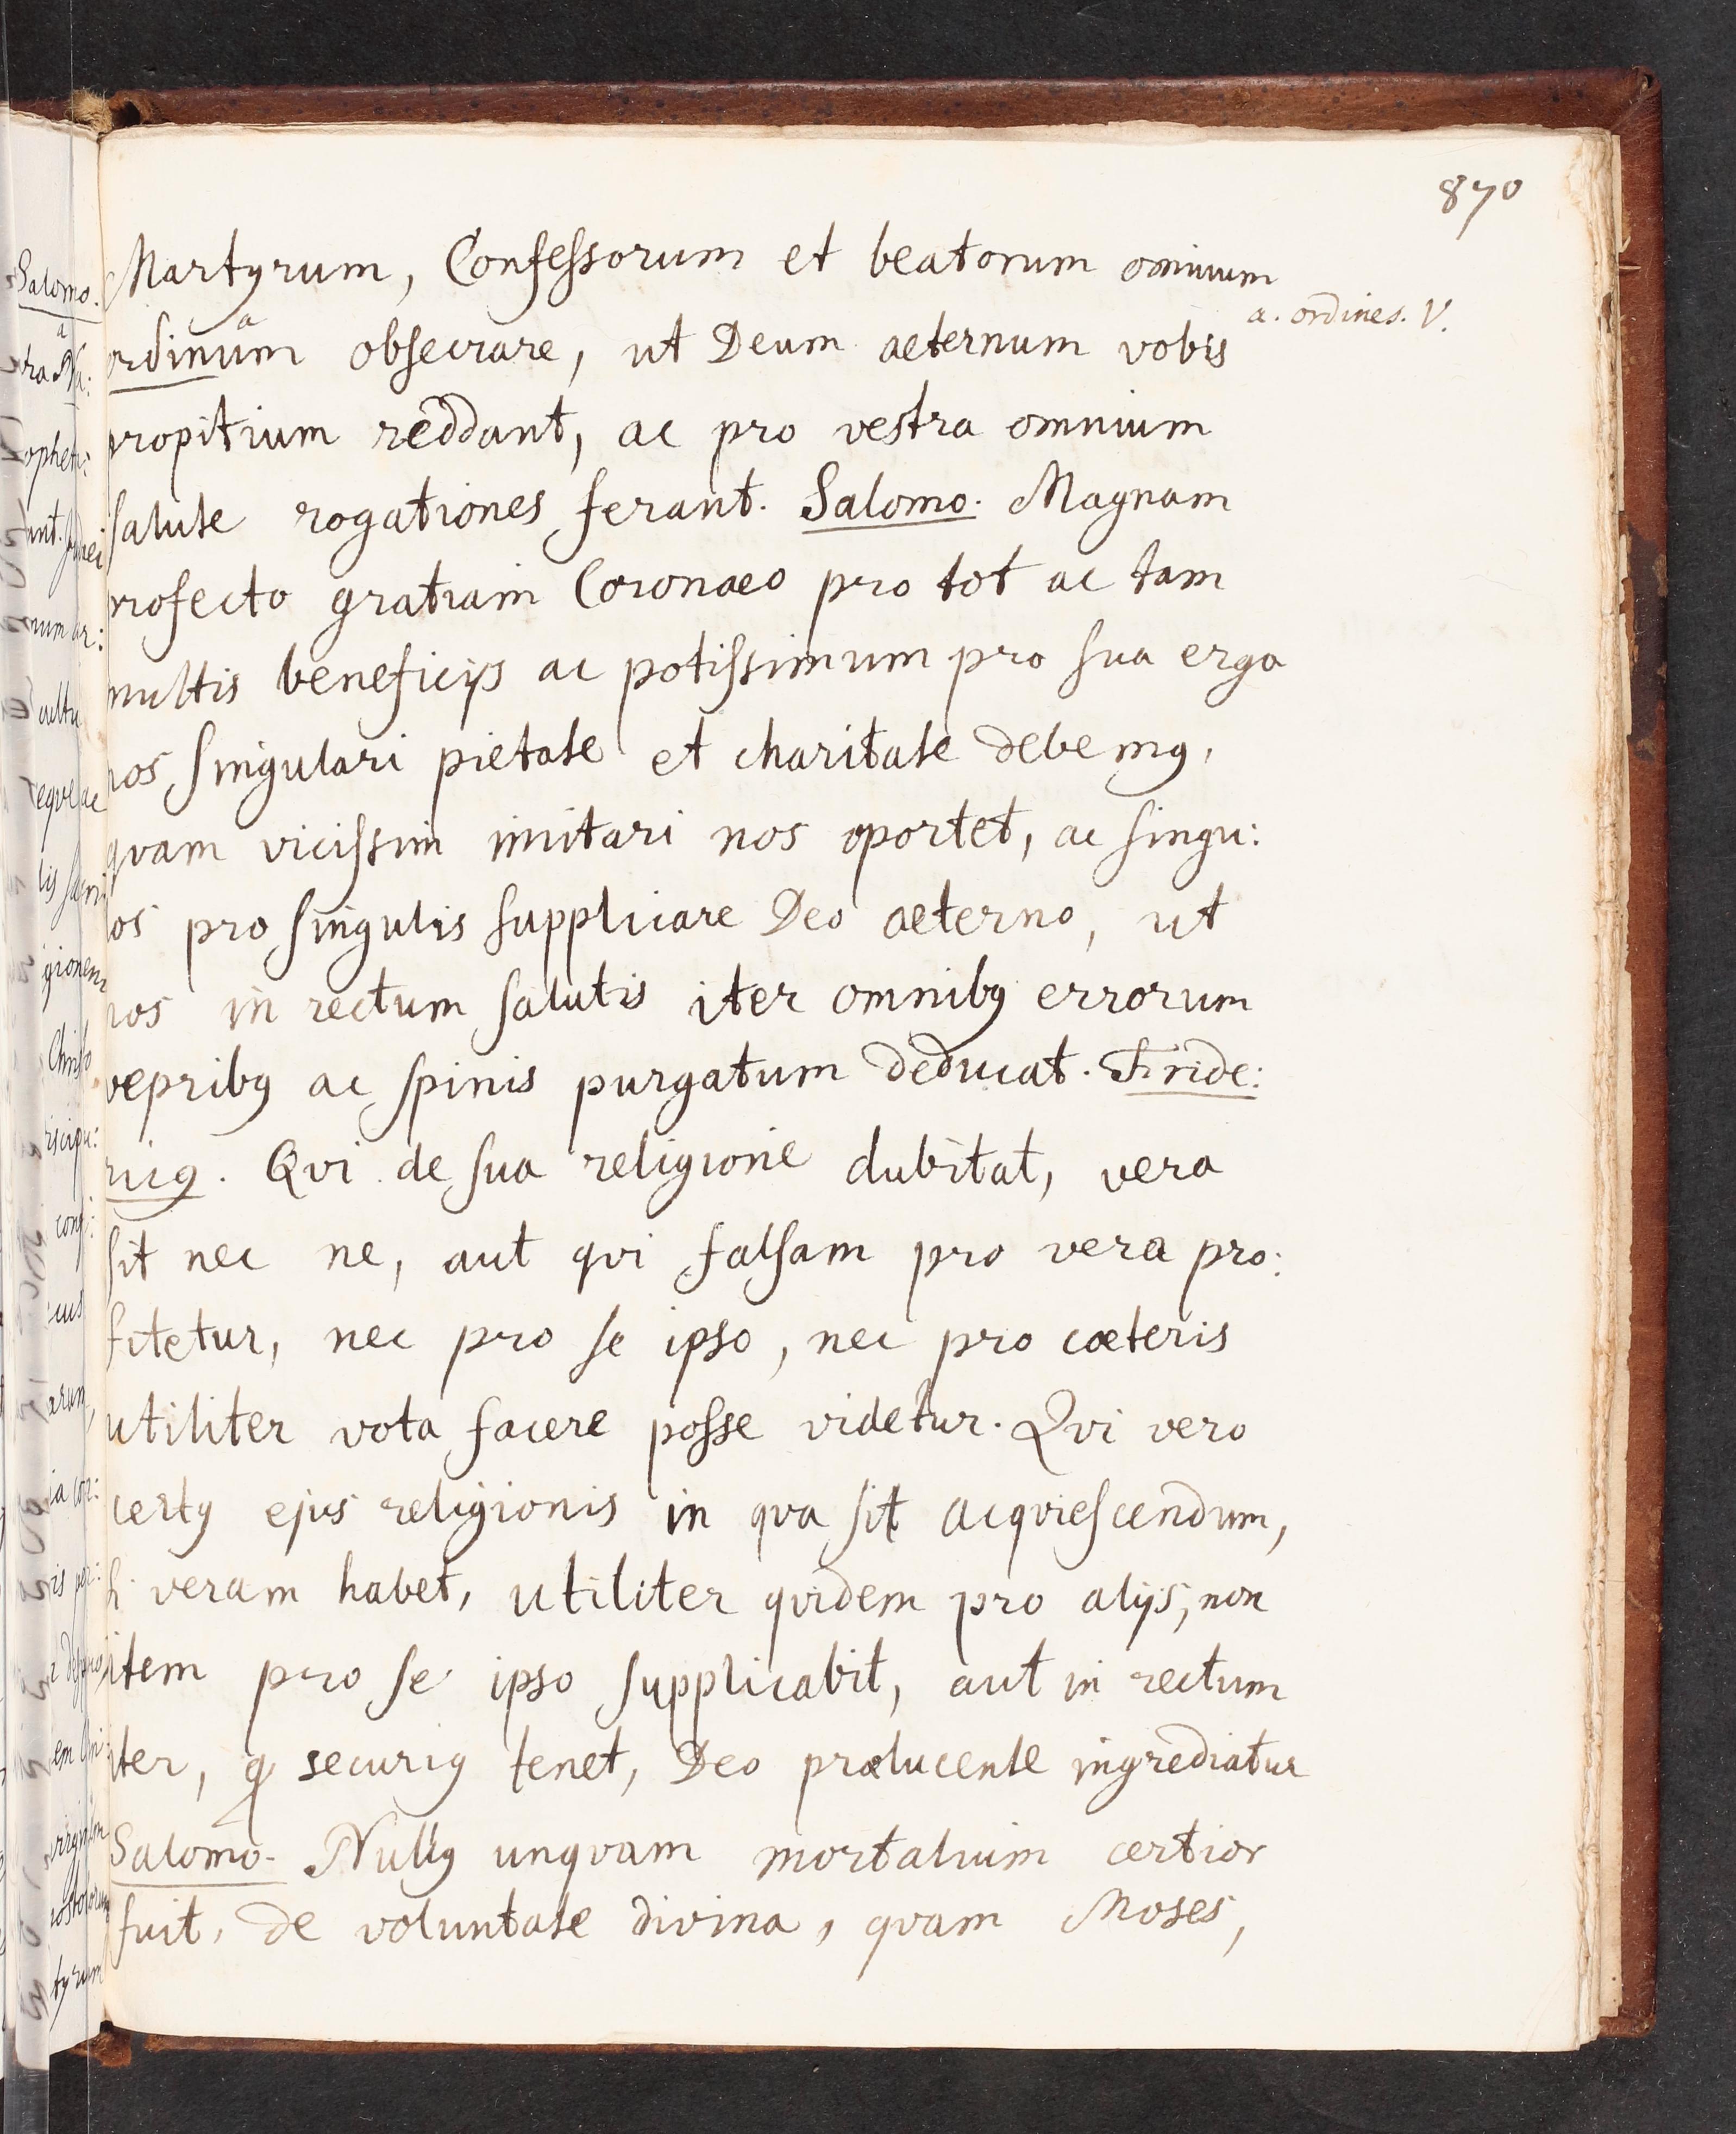 870
Martyrum, Confeſsorum et beatorum omnium
ordinum a obſecrare, ut Deum aeternum vobis
a. ordines. V.
propitium reddant, ac pro vestra omnium
ſalute rogationes ferant. Salomo. Magnam
profecto gratiam Coronaeo pro tot ac tam
multis beneficijs ac potiſsimum pro ſua erga
nos ſingulari pietate et charitate debemꝰ,
qvam viciſsim imitari nos oportet, ac ſingu:
los pro ſingulis ſupplicare Deo aeterno, ut
nos in rectum ſalutis iter omnibꝰ errorum
vepribꝰ ac ſpinis purgatum deducat. Fride:
ricꝰ. Qvi de ſua religione dubitat, vera
ſit nec ne, aut qvi falſam pro vera pro:
fitetur, nec pro ſe ipso, nec pro cæteris
utiliter vota facere poſse videtur. Qvi vero
certꝰ ejus religionis in qva ſit acqvieſcendum,
ſi veram habet, utiliter qvidem pro alijs, non
item pro ſe ipso ſupplicabit, aut in rectum
iter, ꝙ securiꝰ tenet, Deo prælucente ingrediatur
Salomo. Nullꝰ unqvam mortalium certior
fuit, de voluntate divina, qvam Moses,